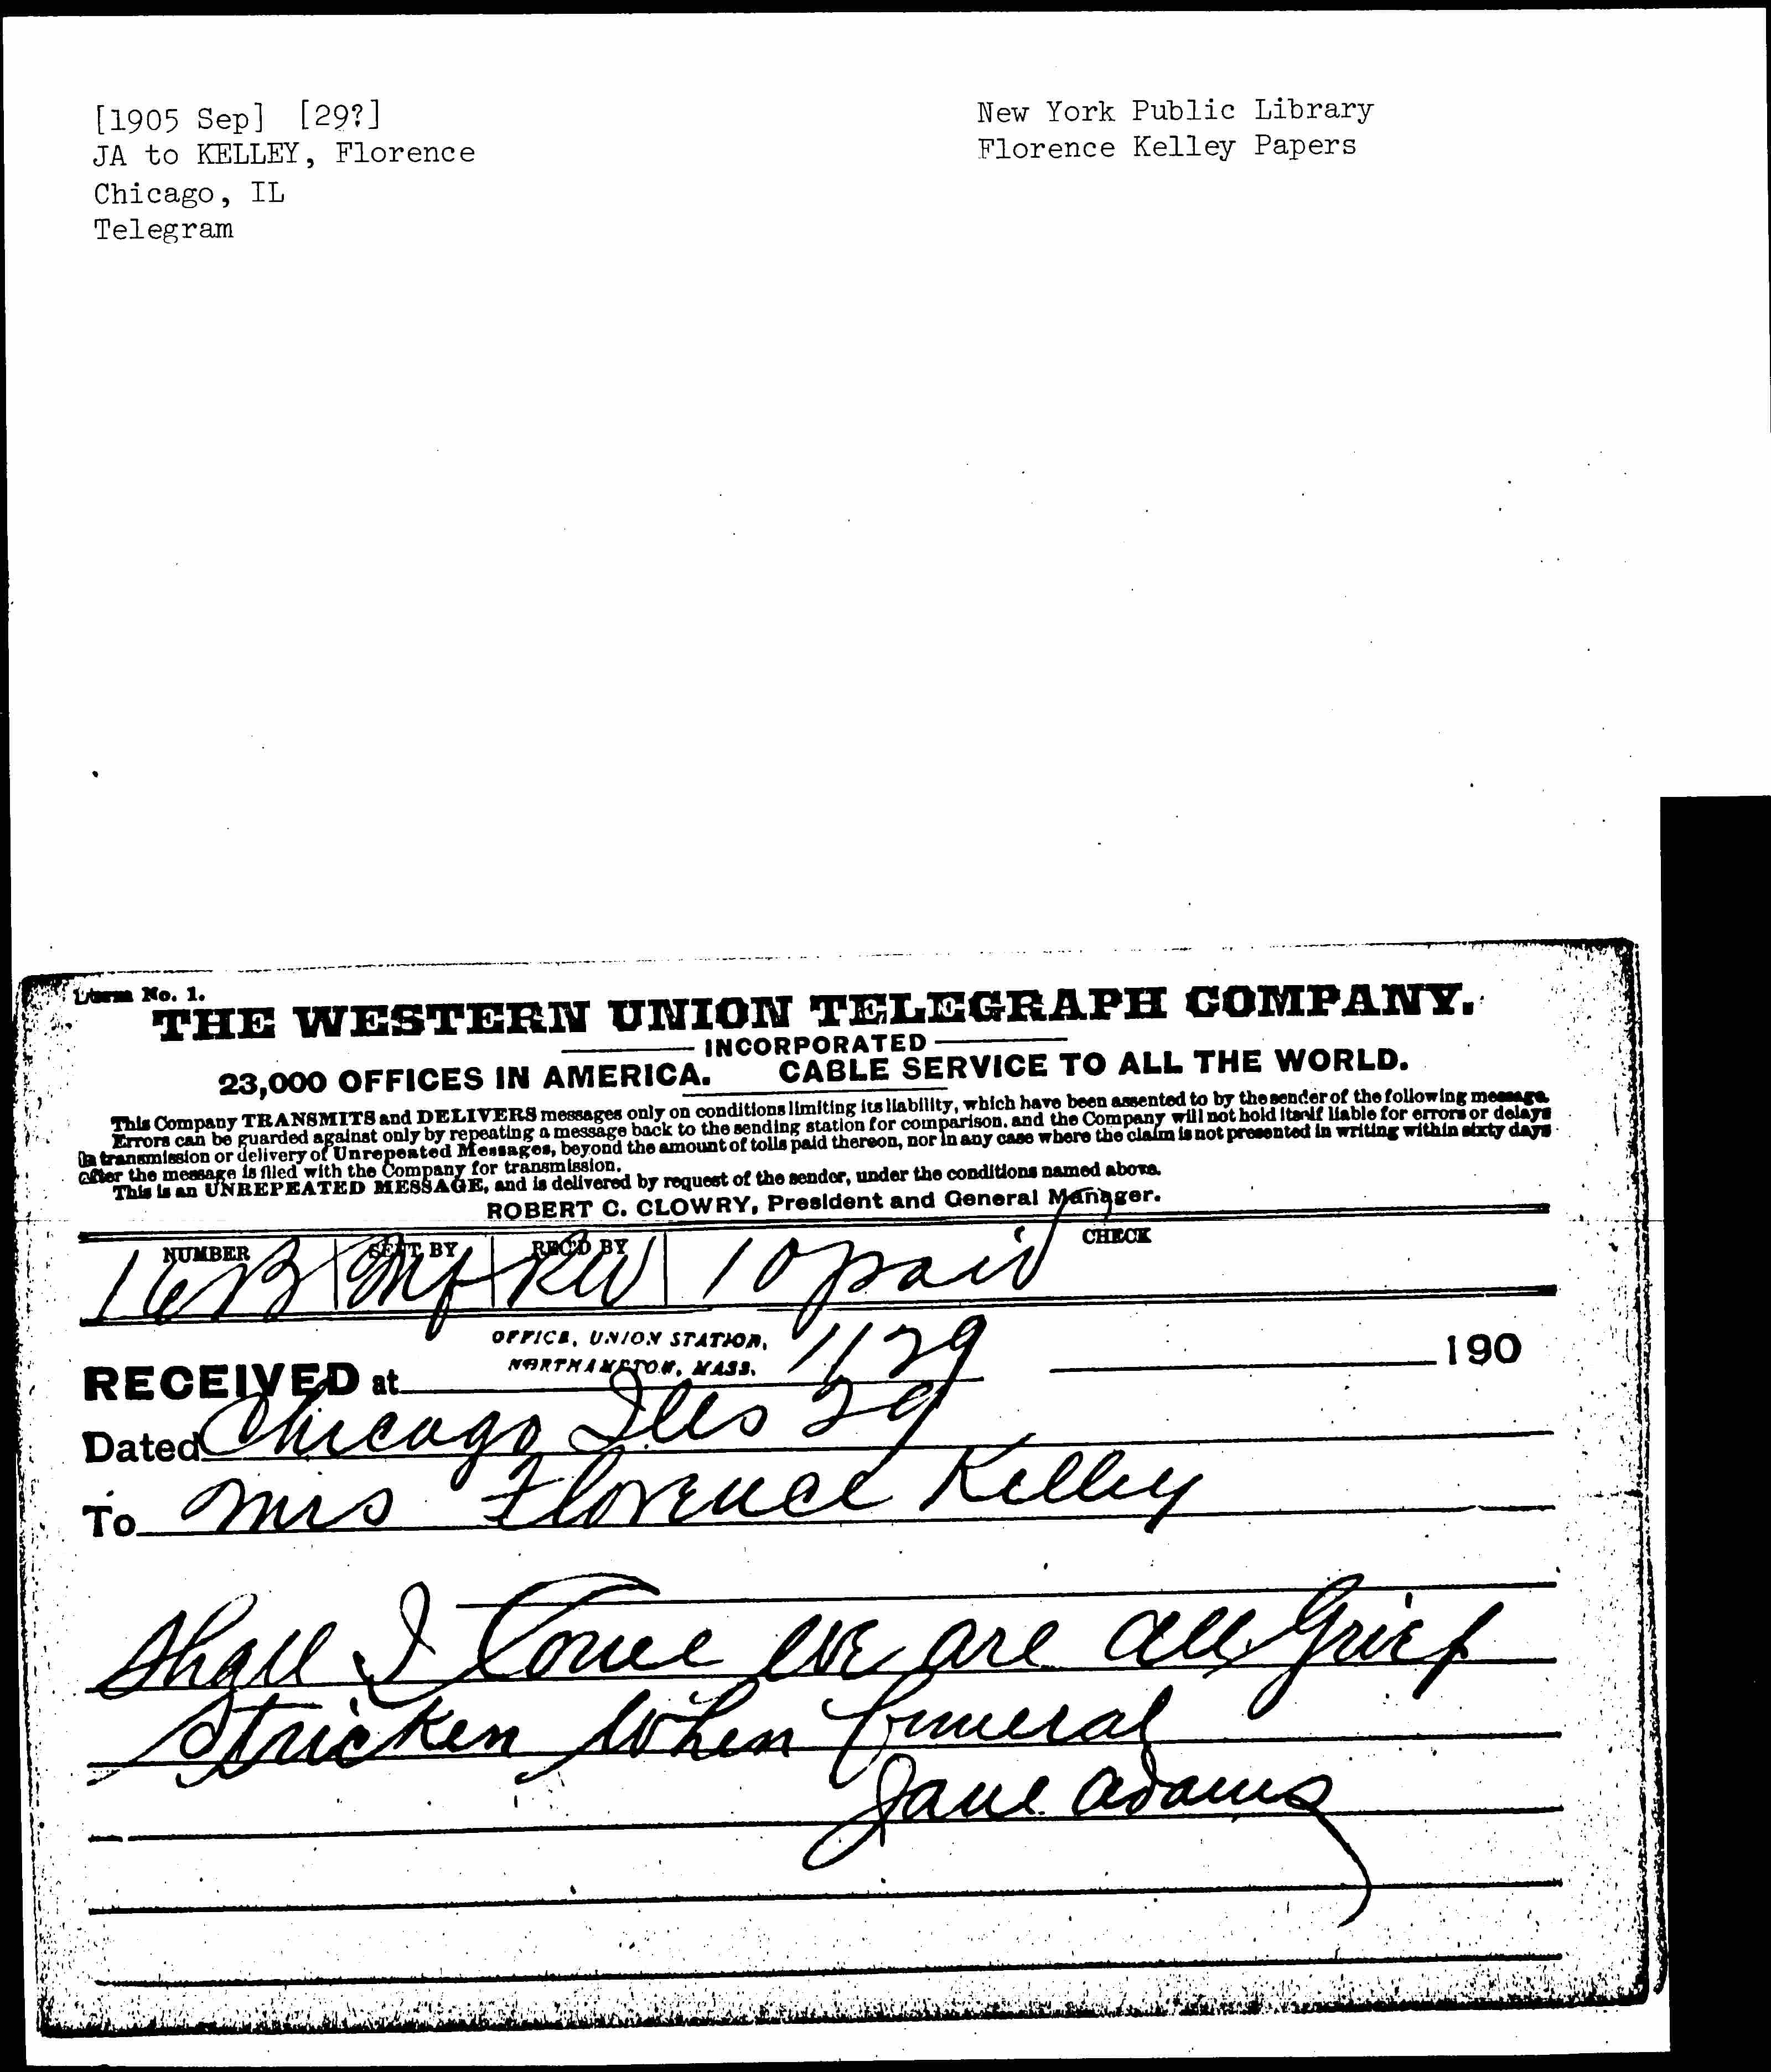 [1905 Sep] [29?]
JA to KELLEY, Florence
Chicago, IL
Telegram
New York Public Library
Florence Kelley Papers
Form No. 1.
THE WESTERN UNION TELEGRAPH COMPANY.
INCORPORATED
23,000 OFFICES IN AMERICA. CABLE SERVICE TO ALL THE WORLD.
This Company TRANSMITS and DELIVERS messages only on conditions limiting its liability, which have been assented to by the sender of the following message.
Errors can be guarded against only by repeating a message back to the sending station for comparison, and the Company will not hold itself liable for errors or delays
in transmission or delivery of Unrepeated Messages, beyond the amount of tolls paid thereon, nor in any case where the claim is not presented in writing within sixty days
after the message is filed with the Company for transmission.
This is an UNREPEATED MESSAGE, and is delivered by request of the sender, under the conditions named above.
ROBERT C. CLOWRY, President and General Manager.
NUMBER SENT BY REC'D BY CHECK
16 B RW 10 paid
OFFICE, UNION STATION,
NORTHAMPTON, MASS.
RECEIVED at 190
Dated Chicago Ills 29
To Mrs Florence Kelley
Shall I Come we are all Grief
Stricken When funeral
Jane Adams